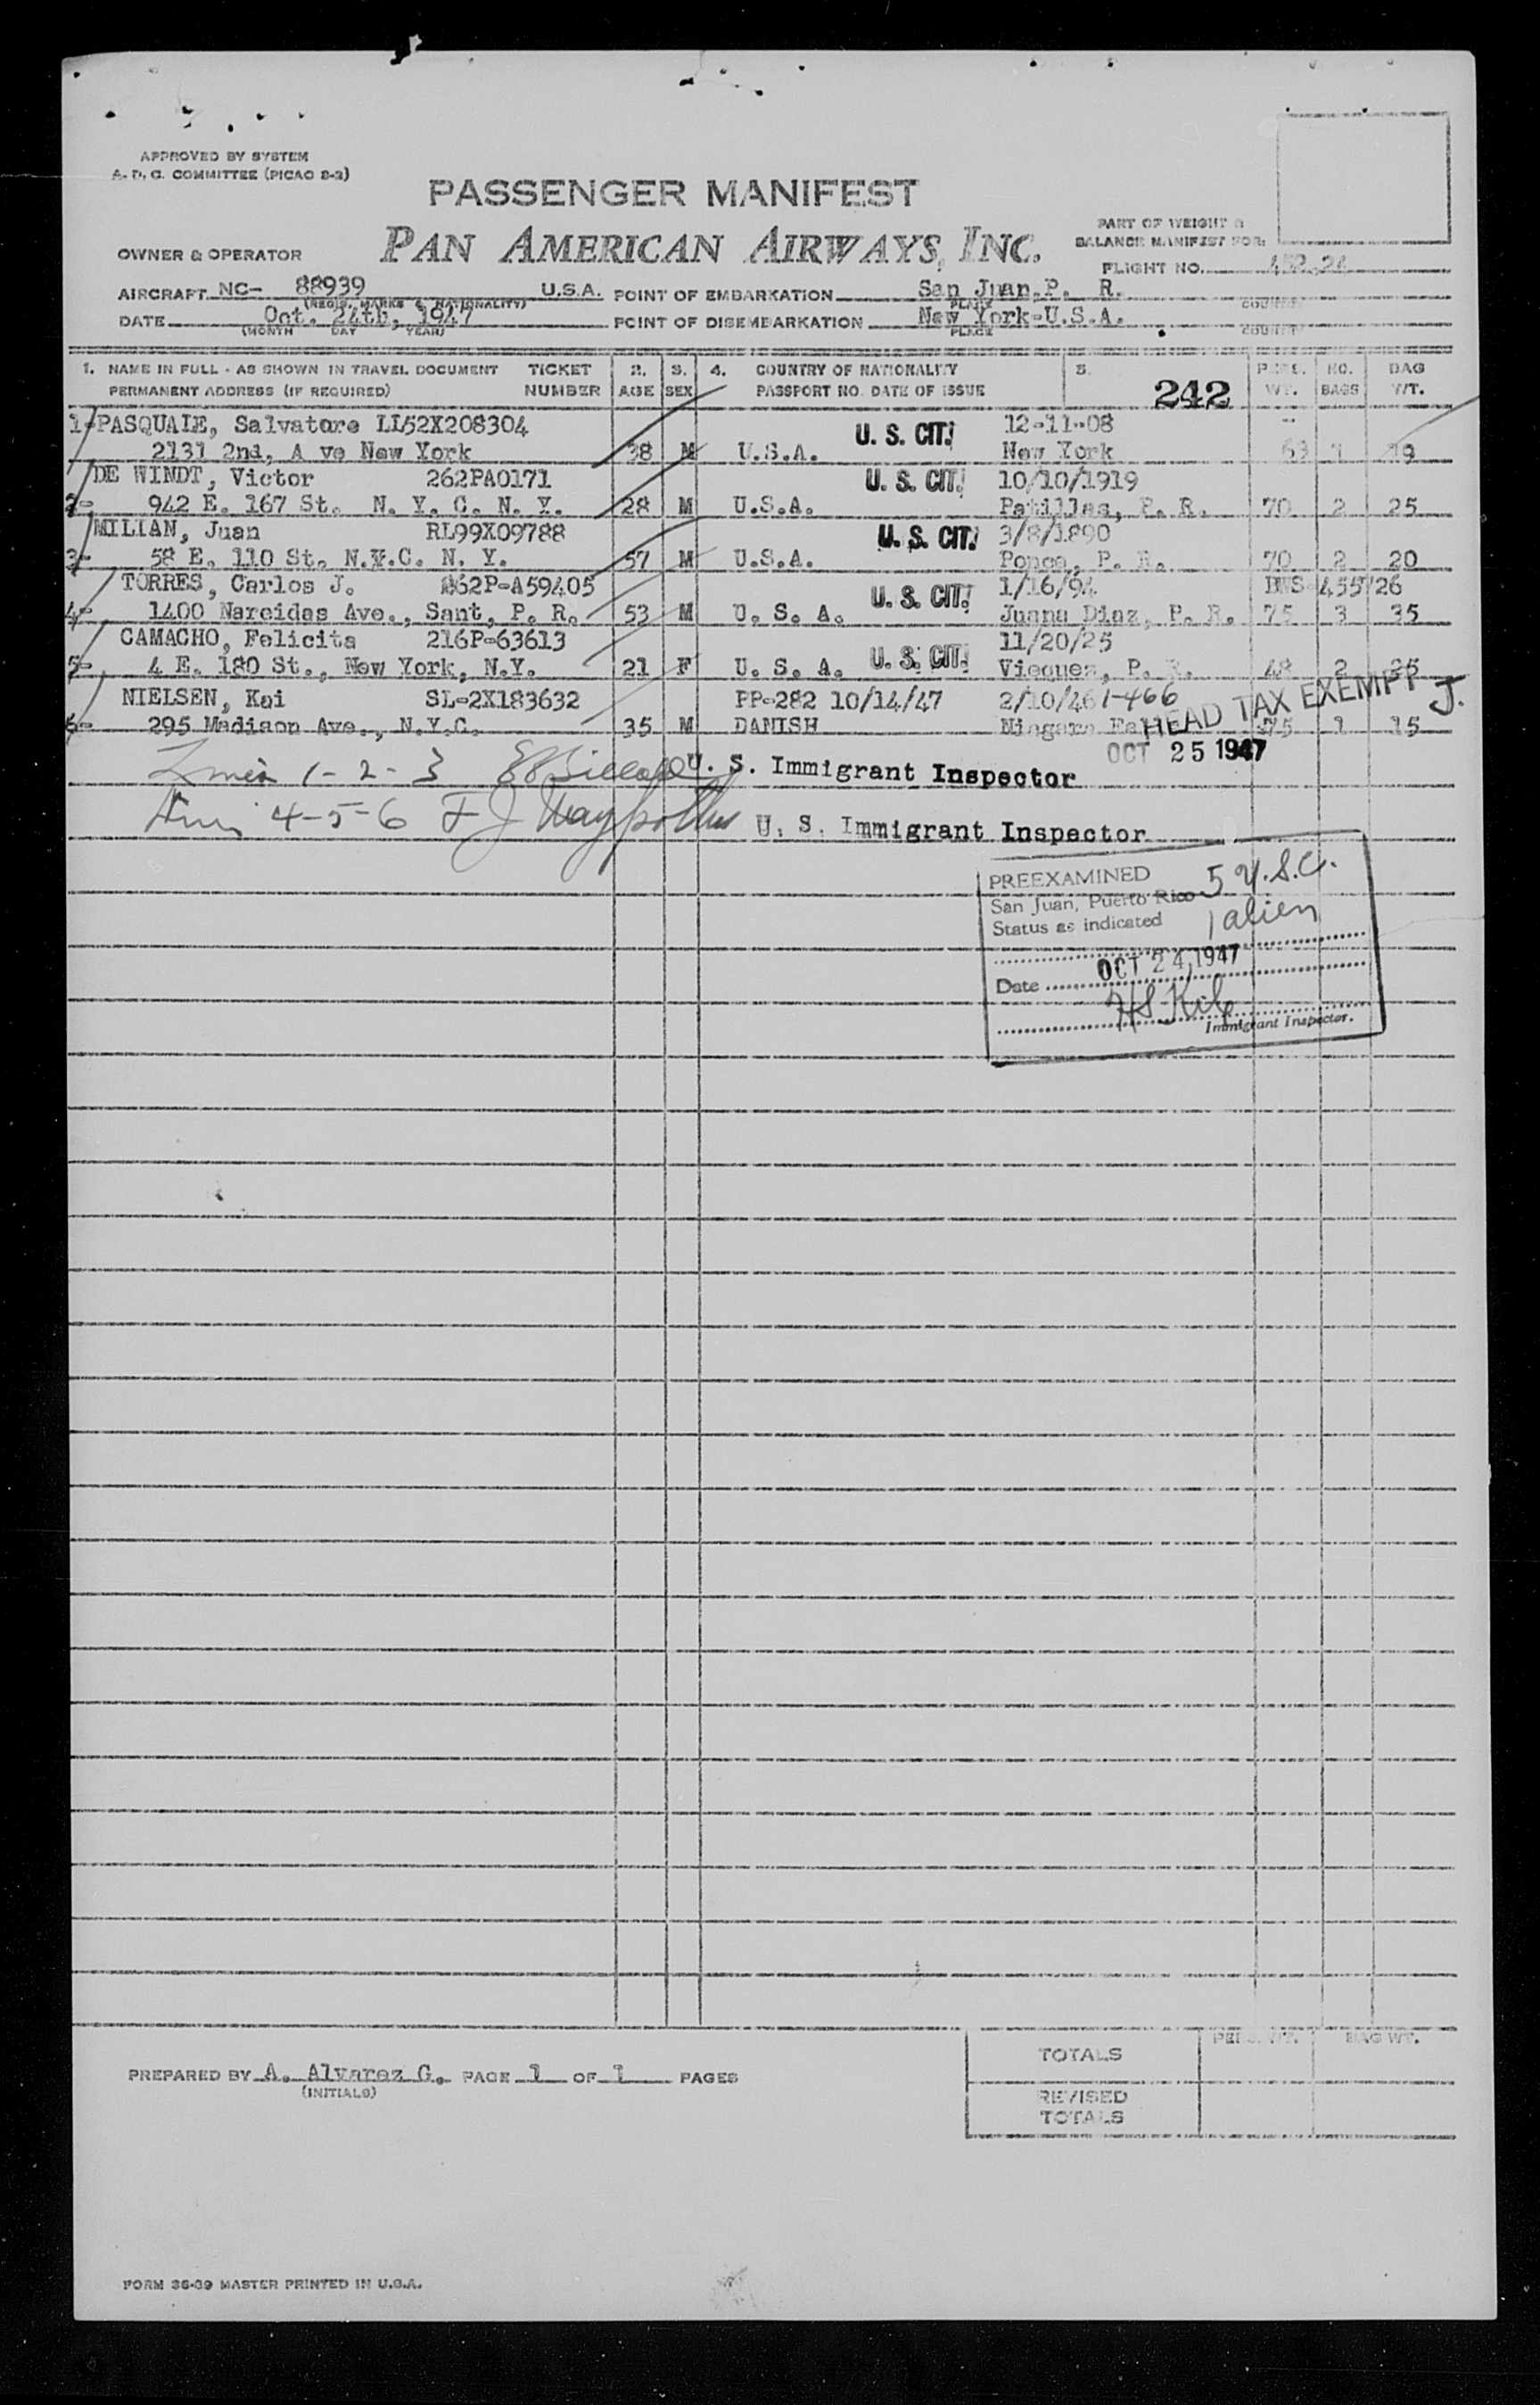 APPROVED BY SYSTEM
A. D. C. COMMITTEE (PICAO 8-2)
PASSENGER MANIFEST
PAN AMERICAN AIRWAYS, INC.
PART OF WEIGHT &
BALANCE MANIFEST FOR:
OWNER & OPERATOR
FLIGHT NO. 452-24
AIRCRAFT NC- 88939 U.S.A. POINT OF EMBARKATION San Juan, P. R.
(REGIS. MARKS & NATIONALITY) PLACE COUNTRY
DATE Oct. 24th, 1947 POINT OF DISEMBARKATION New York-U.S.A.
(MONTH DAY YEAR) PLACE COUNTRY
1. NAME IN FULL - AS SHOWN IN TRAVEL DOCUMENT TICKET 2. 3. 4. COUNTRY OF NATIONALITY 5. NO. BAG
PERMANENT ADDRESS (IF REQUIRED) NUMBER AGE SEX PASSPORT NO. DATE OF ISSUE 242 WT. BAGS WT.
1- PASQUALE, Salvatore LL52X208304 U. S. CIT. 12-11-08
2131 2nd, A ve New York 38 M U.S.A. New York 69 1 19
DE WINDT, Victor 262PA0171 U. S. CIT. 10/10/1919
2- 942 E. 167 St. N. Y. C. N. Y. 28 M U.S.A. Patillas, P. R. 70 2 25
MILIAN, Juan RL99X09788 U. S. CIT. 3/8/1890
3- 58 E. 110 St. N.Y.C. N. Y. 57 M U.S.A. Ponce, P. R. 70 2 20
TORRES, Carlos J. 262P-A59405 U. S. CIT. 1/16/94 455726
4- 1400 Narcidas Ave., Sant, P. R. 53 M U. S. A. Juana Diaz, P. R. 75 3 35
CAMACHO, Felicita 216P-63613 U. S. CIT. 11/20/25
5- 4 E. 180 St., New York, N.Y. 21 F U. S. A. Vieques, P. R. 48 2 25
NIELSEN, Kai SL-2X183632 PP-282 10/14/47 2/10/46 1-466 HEAD TAX EXEMPT J.
6- 295 Madison Ave., N.Y.C. 35 M DANISH Niagara 75 1 15
OCT 25 1947
1-2-3 U. S. Immigrant Inspector
4-5-6 U. S. Immigrant Inspector
PREEXAMINED 5 U.S.C.
San Juan, Puerto Rico
Status as indicated 1 alien
Date OCT 24 1947
Immigrant Inspector.
TOTALS PER. WT. BAG WT.
PREPARED BY A. Alvarez G. PAGE 1 OF 1 PAGES
(INITIALS)
REVISED
TOTALS
FORM 36-39 MASTER PRINTED IN U.S.A.